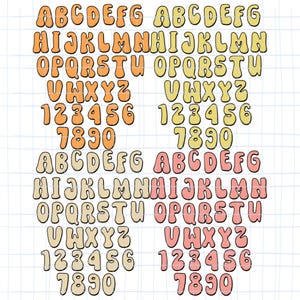 ABCDEFG
HIJKLMN
OPQRSTU
VWXYZ
123456
7890
ABCDEFG
HIJKLMN
OPQRSTU
VWXYZ
123456
7890
ABCDEFG
HIJKLMN
OPQRSTU
VWXYZ
123456
7890
ABCDEFG
HIJKLMN
OPQRSTU
VWXYZ
123456
7890